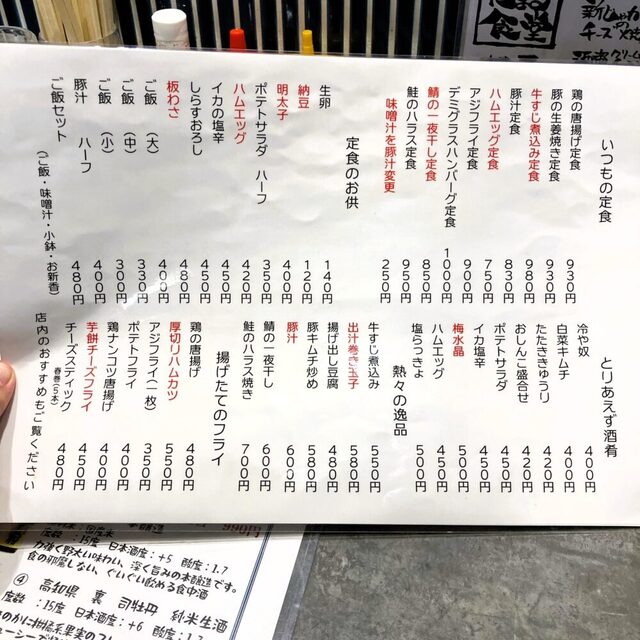 いつもの定食
鶏の唐揚げ定食 930円
豚の生姜焼き定食 930円
牛すじ煮込み定食 980円
豚汁定食 830円
ハムエッグ定食 750円
アジフライ定食 900円
デミグラスハンバーグ定食 1000円
鯖の一夜干し定食 850円
鮭のハラス定食 950円
味噌汁を豚汁変更 250円
定食のお供
生卵 140円
納豆 120円
明太子 400円
ポテトサラダ ハーフ 350円
ハムエッグ 420円
イカの塩辛 450円
しらすおろし 450円
板わさ 480円
ご飯(大) 400円
ご飯(中) 330円
ご飯(小) 300円
豚汁 ハーフ 400円
ご飯セット 480円
(ご飯・味噌汁・小鉢・お新香)
とりあえず酒肴
冷や奴 400円
白菜キムチ 400円
たたききゅうり 420円
おしんこ盛合せ 500円
ポテトサラダ 450円
イカ塩辛 450円
梅水晶 500円
ハムエッグ 450円
塩らっきょ 500円
熱々の逸品
牛すじ煮込み 550円
出汁巻き玉子 580円
揚げ出し豆腐 480円
豚キムチ炒め 580円
豚汁 600円
鯖の一夜干し 600円
鮭のハラス焼き 700円
揚げたてのフライ
鶏の唐揚げ 480円
厚切りハムカツ 550円
アジフライ(一枚) 350円
ポテトフライ 400円
鶏ナンコツ唐揚げ 400円
芋餅チーズフライ 450円
チーズスティック 480円
春巻(5本)
店内のおすすめもご覧ください
食堂
990円
度数:15度 日本酒度:+5 酸度:1.7
力強く野太い味わい、深く旨みの本醸造です。
食の邪魔しない、ぐいぐい飲める食中酒
④ 高知県 裏 司牡丹 純米生酒
度数:15度 日本酒度:+6 酸度:1.7